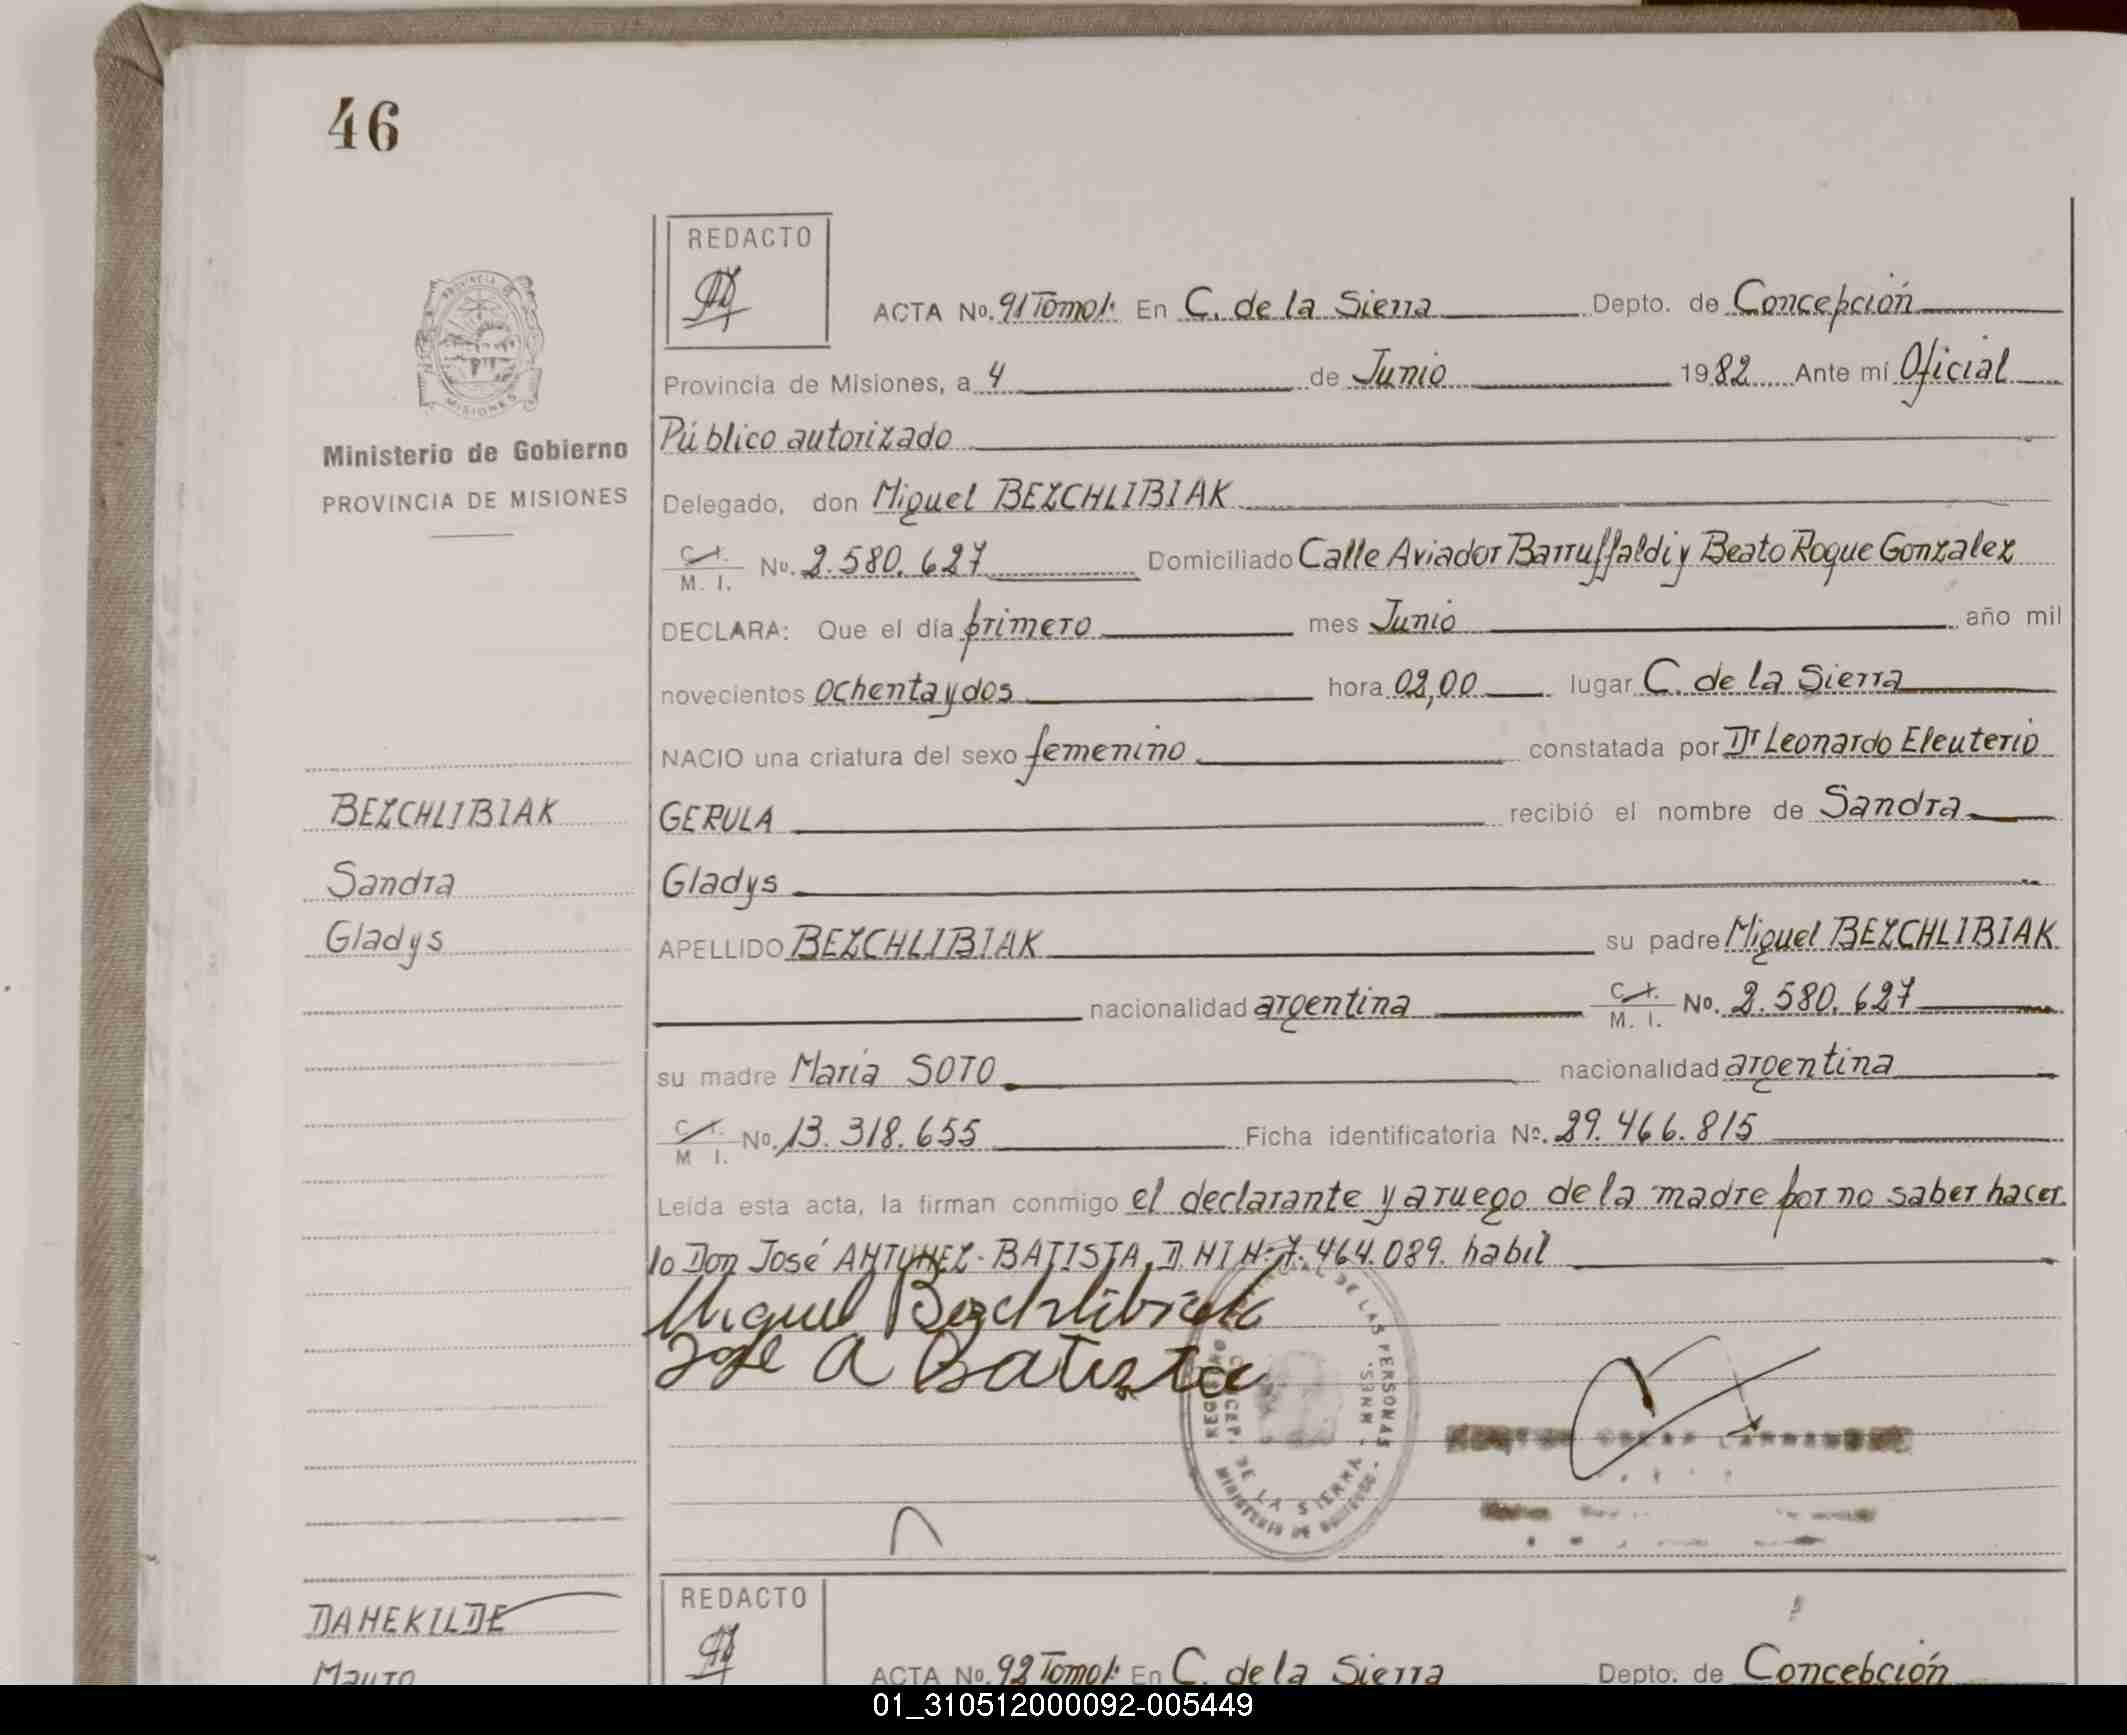 46
REDACTO
PROVINCIA DE
MISIONES
ACTA No. 91 Tomo 1: En C. de la Sierra Depto. de Concepción
Provincia de Misiones, a 4 de Junio 1982 Ante mí Oficial
Ministerio de Gobierno
Público autorizado
PROVINCIA DE MISIONES
Delegado, don Miguel BEZCHLIBIAK
C. I.
M. I. No. 2.580.627 Domiciliado Calle Aviador Barruffaldi y Beato Roque Gonzalez
DECLARA: Que el día primero mes Junio año mil
novecientos ochenta y dos hora 02,00 lugar C. de la Sierra
NACIO una criatura del sexo femenino constatada por Dr Leonardo Eleuterio
BEZCHLIBIAK
GERULA recibió el nombre de Sandra
Sandra
Gladys
Gladys
APELLIDO BEZCHLIBIAK su padre Miguel BEZCHLIBIAK
nacionalidad argentina C. I.
M. I. No. 2.580.627
su madre María SOTO nacionalidad argentina
C. I.
M I. No. 13.318.655 Ficha identificatoria No. 29.466.815
Leída esta acta, la firman conmigo el declarante y a ruego de la madre por no saber hacer
lo Don José ANTUNEZ-BATISTA D.N I N: 7.464.089. habil
Miguel Bezchlibiak
José A Batista
DE LAS PERSONAS
CONCEP. DE LA SIERRA - MNES.
REDACTO
DANEKILDE
Mauro
ACTA No. 92 Tomo 1: En C. de la Sierra Depto. de Concepción
01_310512000092-005449